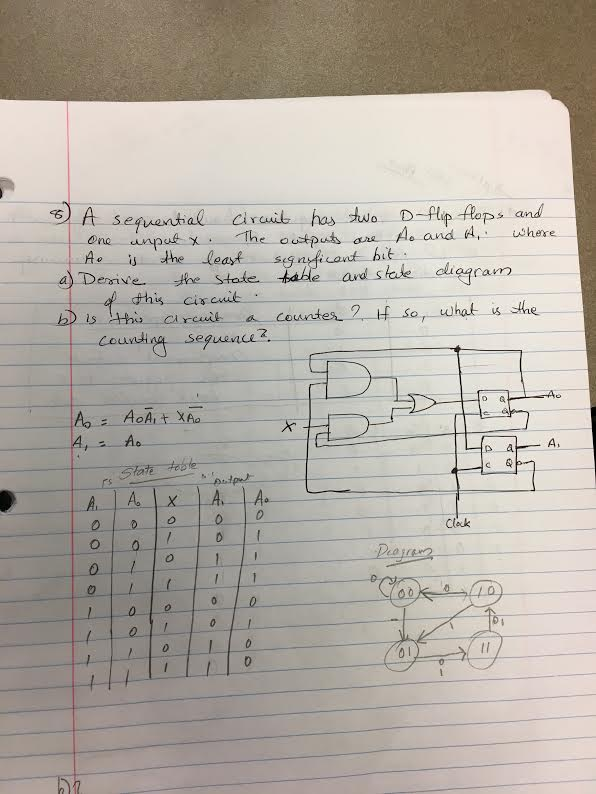 8) A sequential circuit has two D-flip flops and
one input x. The outputs are A₀ and A₁. where
A₀ is the least significant bit.
a) Derive the state table and state diagram
of this circuit.
b) is this circuit a counter? If so, what is the
counting sequence?
A₀ = A₀Ā₁ + XĀ₀
A₁ = A₀
X
D Q
C Q
A₀
D Q
C Q
A₁
Clock
PS State table output
A₁ A₀ X A₁ A₀
0 0 0 0 0
0 0 1 0 1
0 1 0 1 1
0 1 1 1 1
1 0 0 0 0
1 0 1 0 1
1 1 0 1 0
1 1 1 1 0
Diagram
0 00 0 10
1 1 0,1
01 0 11
1
b)